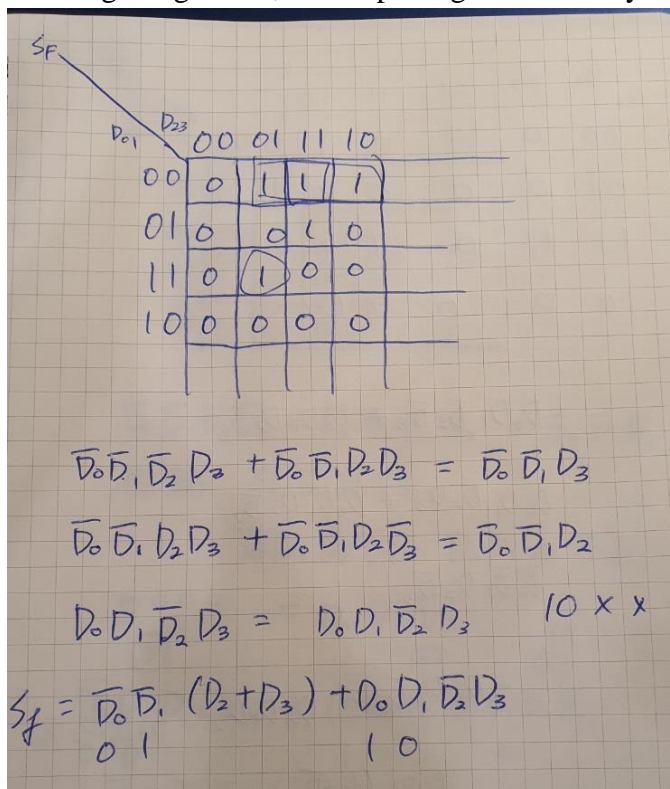 S_F
D₀₁ D₂₃ 00 01 11 10
00 0 1 1 1
01 0 0 1 0
11 0 1 0 0
10 0 0 0 0
D̅₀D̅₁D̅₂D₃ + D̅₀D̅₁D₂D₃ = D̅₀D̅₁D₃
D̅₀D̅₁D₂D₃ + D̅₀D̅₁D₂D̅₃ = D̅₀D̅₁D₂
D₀D₁D̅₂D₃ = D₀D₁D̅₂D₃ 10 x x
S_f = D̅₀D̅₁(D₂+D₃) + D₀D₁D̅₂D₃
0 1 1 0